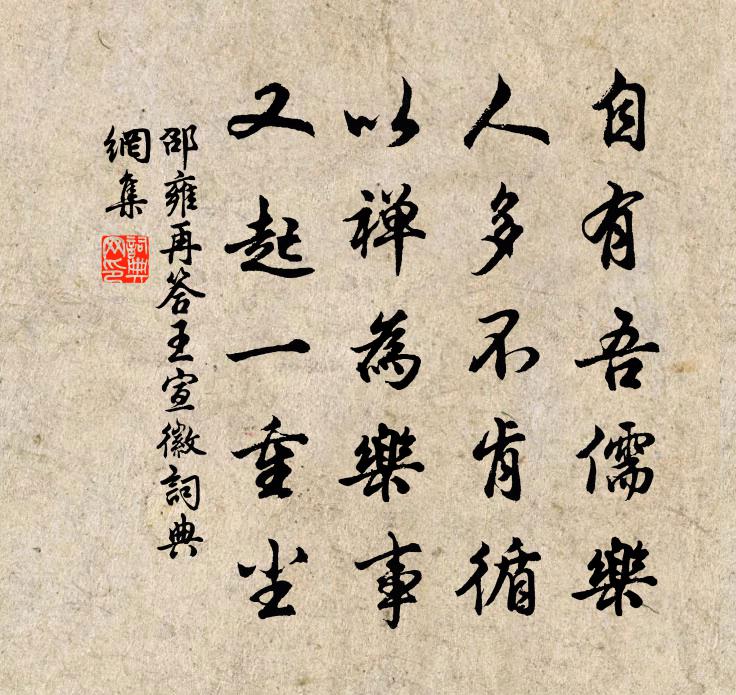 自有吾儒樂
人多不肯循
以禅為樂事
又起一重尘
邵雍再答王宣徽詞典
網集
詞典
网印